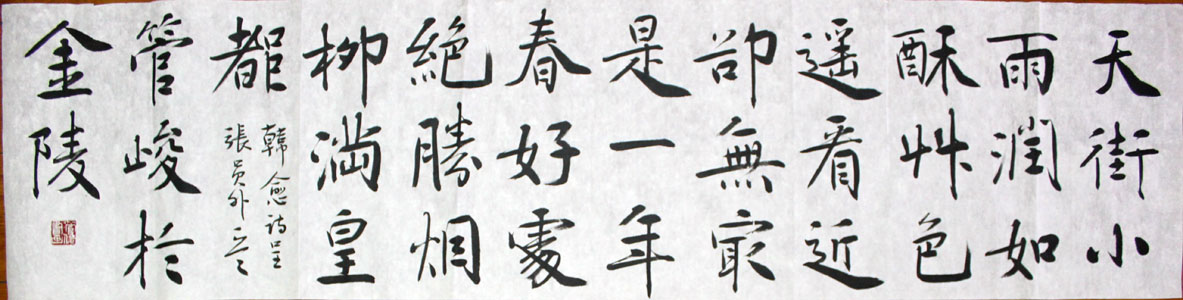 天街小
雨潤如
酥艸色
遥看近
卻無冣
是一年
春好處
絶勝烟
柳滿皇
都
韓愈詩呈
張員外
管峻於
金陵